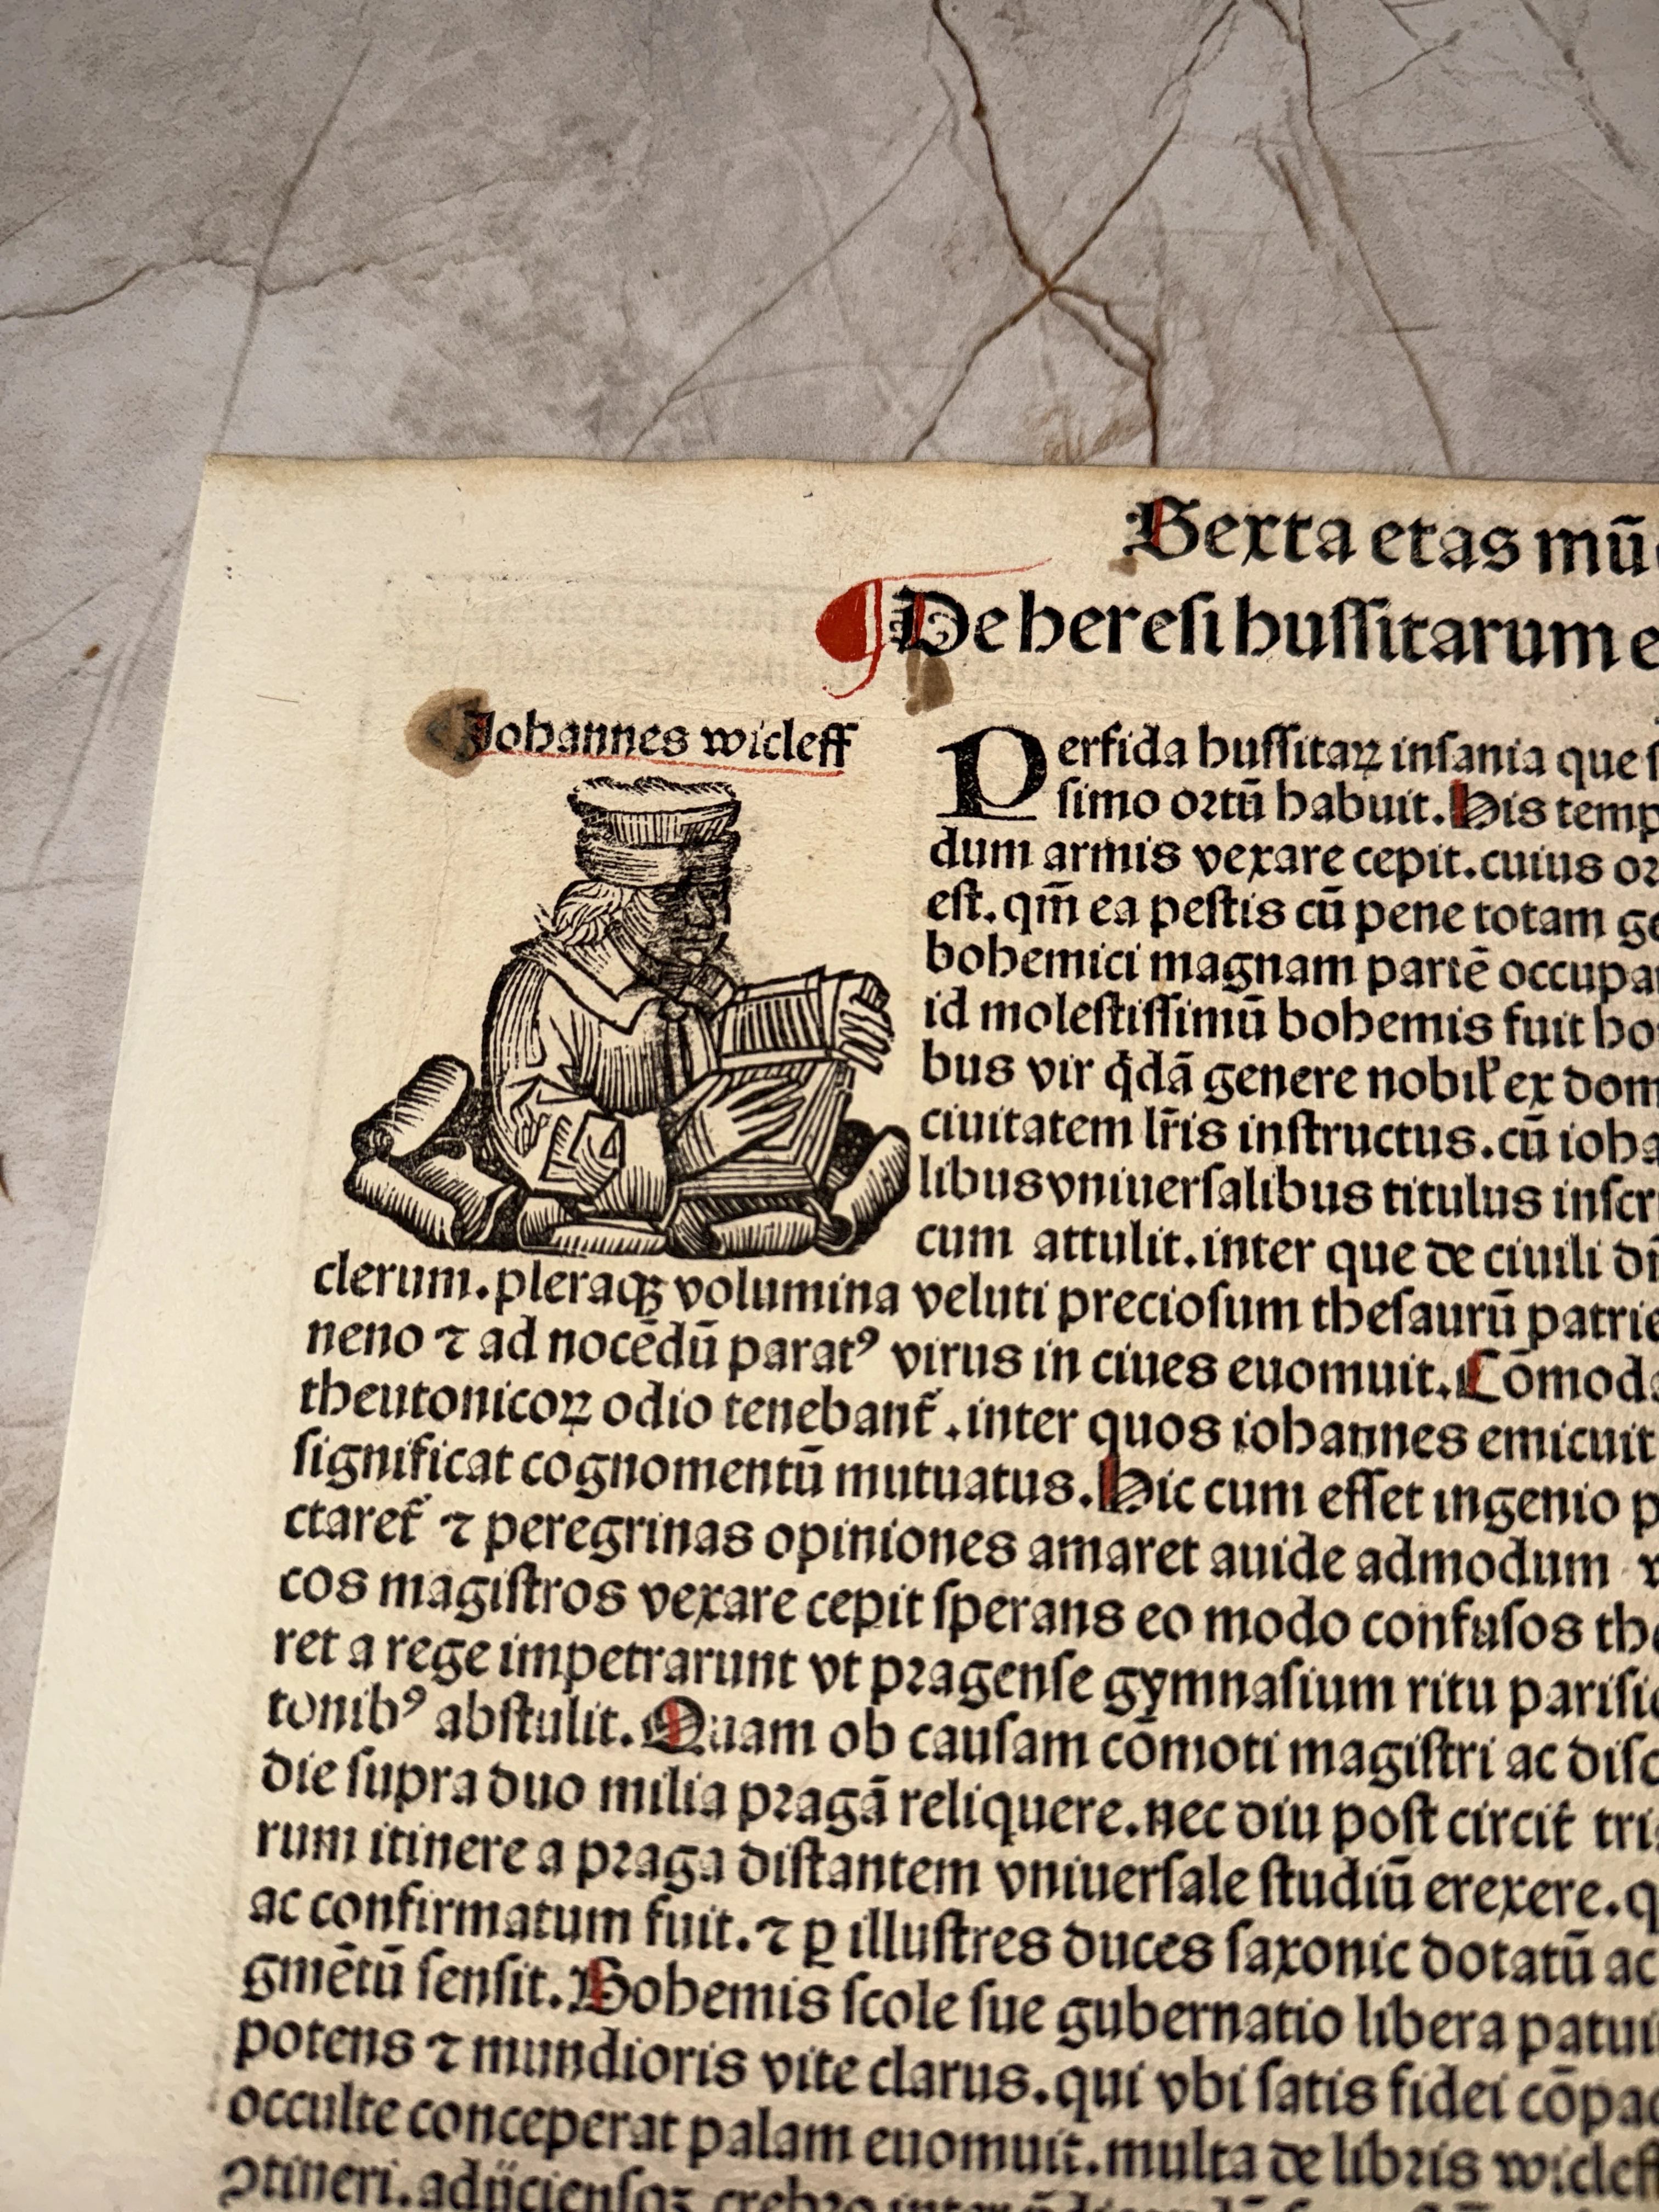 Sexta etas mū
De heresi hussitarum e
Johannes wicleff
Perfida hussitaꝝ insania que s
simo ortū habuit. His temp
dum armis vexare cepit. cuius or
est. qm̄ ea pestis cū pene totam ge
bohemici magnam partē occupa
id molestissimū bohemis fuit ho
bus vir q̇dā genere nobil̓ ex dom
ciuitatem lr̄is instructus. cū ioha
libus vniuersalibus titulus inscri
cum attulit. inter que de ciuili di
clerum. pleraqꝫ volumina veluti preciosum thesaurū patrie
neno ⁊ ad nocēdū paratꝰ virus in ciues euomuit. Cōmoda
theutonicoꝝ odio tenebant᷑. inter quos iohannes emicuit
significat cognomentū mutuatus. Hic cum esset ingenio p
ctaret᷑ ⁊ peregrinas opiniones amaret auide admodum
cos magistros vexare cepit sperans eo modo confusos the
ret a rege impetrarunt vt pragense gymnasium ritu parisi
tonibꝰ abstulit. Quam ob causam cōmoti magistri ac disc
die supra duo milia pragā reliquere. nec diu post circit᷑ tri
rum itinere a praga distantem vniuersale studiū erexere. q
ac confirmatum fuit. ⁊ ꝑ illustres duces saxonic dotatū ac
gmētū sensit. Bohemis scole sue gubernatio libera patui
potens ⁊ mundioris vite clarus. qui vbi satis fidei cōpa
occulte conceperat palam euomuit. multa de libris wicleff
ꝯtineri. adijciensqꝫ crebro inter